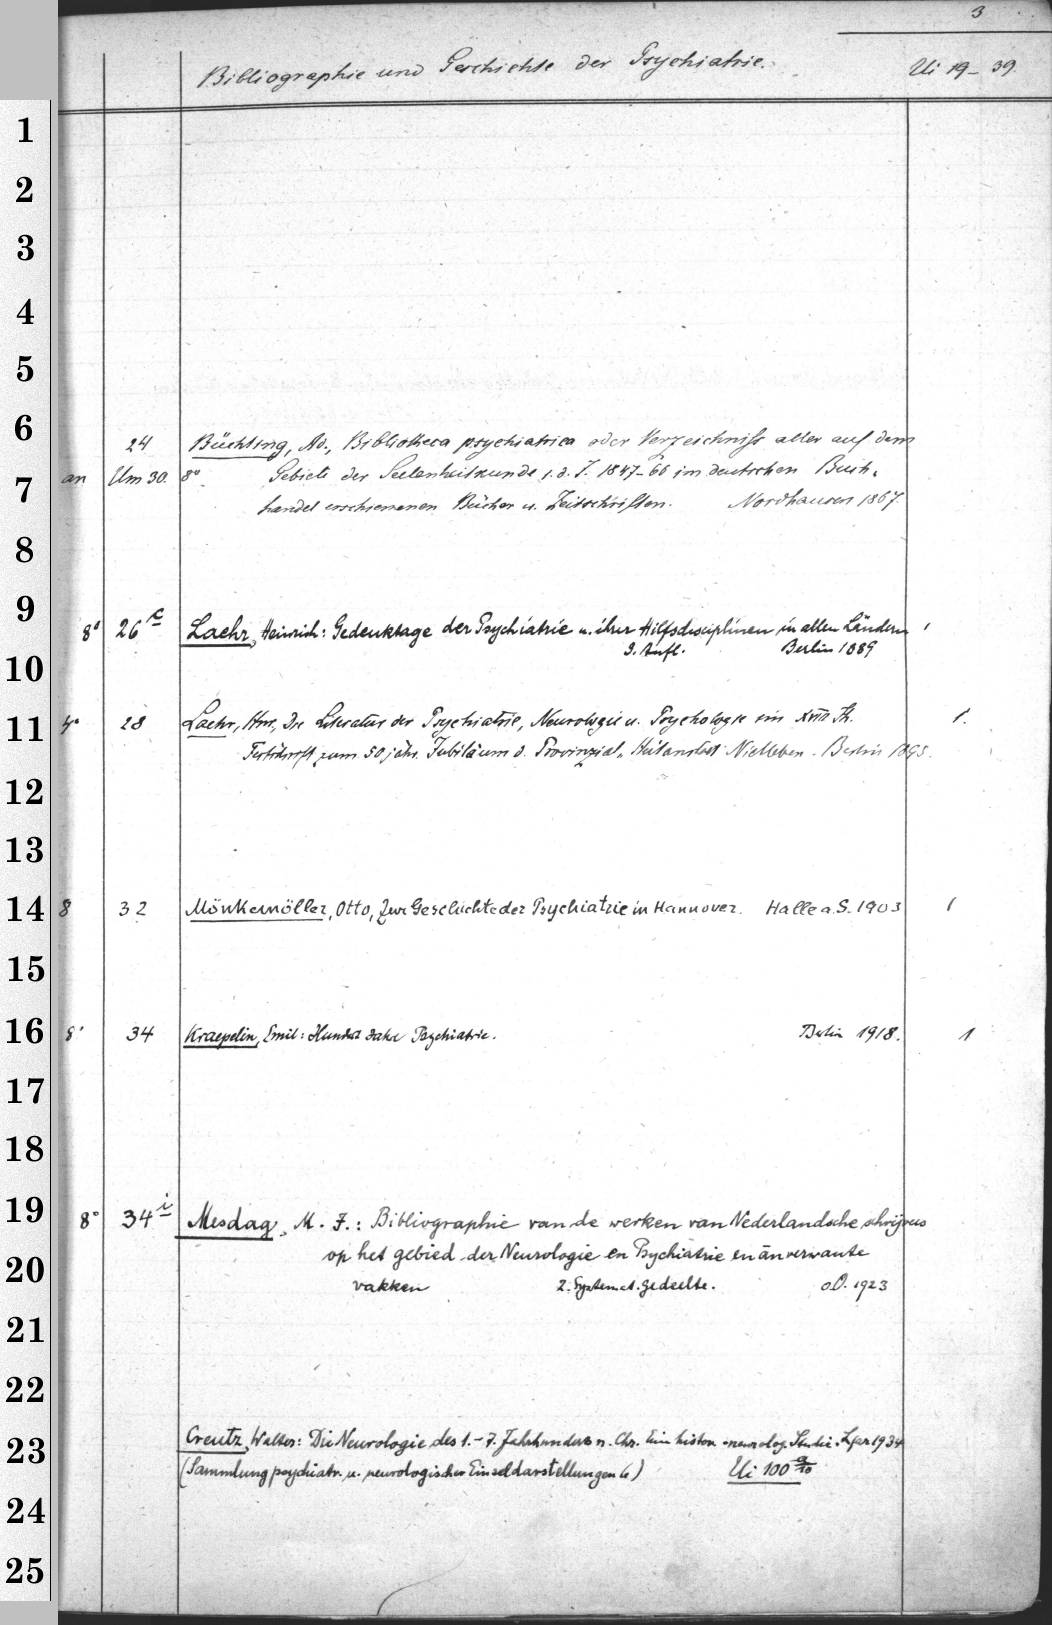 3
Bibliographie und Geschichte der Psychiatrie. Ui 19-39.
1
2
3
4
5
6 24 Büchting, Ad., Bibliotheca psychiatrica oder Verzeichniss aller auf dem
7 an Um 30. 8° Gebiete der Seelenheilkunde i. d. J. 1847-66 im deutschen Buch-
handel erschienenen Bücher u. Zeitschriften. Nordhausen 1867.
8
9 8° 26 c Laehr, Heinrich: Gedenktage der Psychiatrie u. ihrer Hilfsdisciplinen in allen Ländern 1
10 Aufl. Berlin 1889
11 4° 28 Laehr, Hnr., Die Literatur der Psychiatrie, Neurologie u. Psychologie im XVIII Jh. 1.
Festschrift zum 50 jähr. Jubiläum d. Provinzial-Heilanstalt Nietleben. Berlin 1895.
12
13
14 8 32 Mönkemöller, Otto, Zur Geschichte der Psychiatrie in Hannover. Halle a. S. 1903 1
15
16 8° 34 Kraepelin, Emil: Hundert Jahre Psychiatrie. Berlin 1918. 1
17
18
19 8° 34 i Mesdag, M. J.: Bibliographie van de werken van Nederlandsche schrijvers
20 op het gebied der Neurologie en Psychiatrie en ānverwante
vakken 2. Systemat. gedeelte. o.O. 1923
21
22
23 Creutz, Walter: Die Neurologie des 1.-7. Jahrhunderts n. Chr. Eine histor.-neurolog. Studie. Lpz 1934
(Sammlung psychiatr. u. neurologischer Einzeldarstellungen 6) Ui 100 a/10
24
25